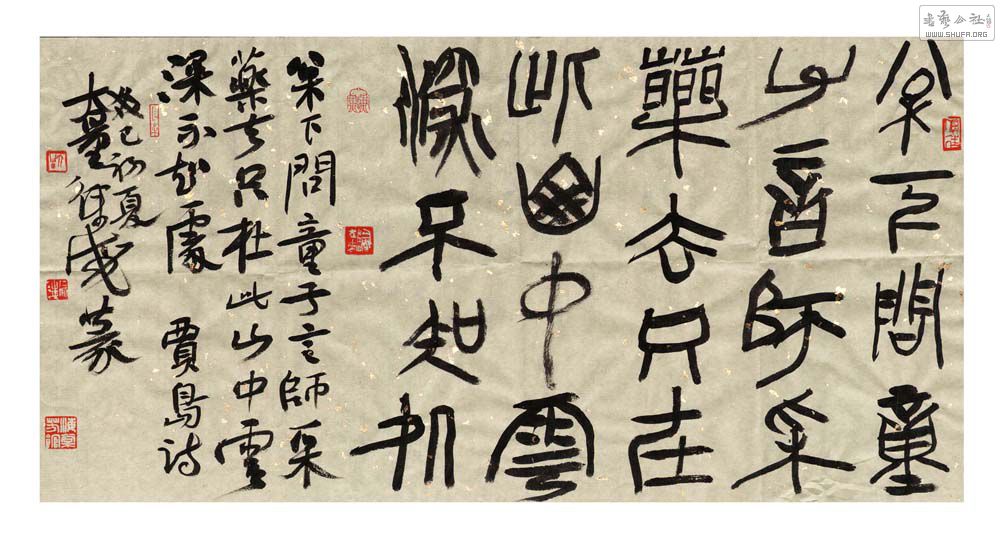 枀下問童
子言師采
藥去只在
此山中雲
深不知処
枀下問童子言師采
藥去只在此山中雲
深不知處 賈島詩
癸巳初夏
篆
書藝公社
WWW.SHUFA.ORG